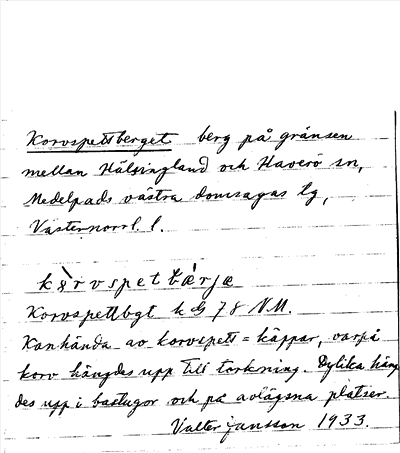 Korvspettsberget berg på gränsen
mellan Hälsingland och Haverö sn,
Medelpads västra domsagas tg,
Västernorrl. l.
kòrvspetbæ̀rjæ
Korvspettbgt kbl 78 NM.
Kanhända av korvspett = käppar, varpå
korv hängdes upp till torkning. Dylika häng
des upp i bastugor och på avlägsna platser.
Valter Jansson 1933.